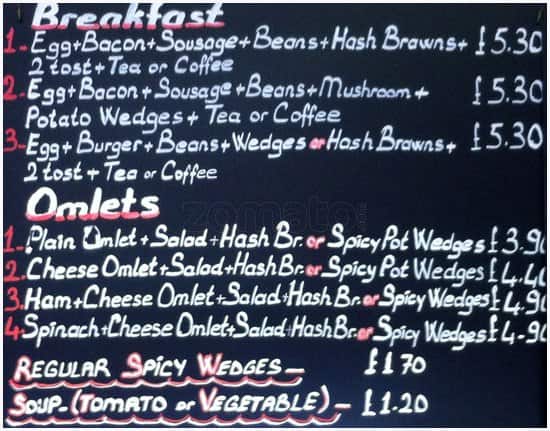 Breakfast
1- Egg+Bacon+Sousage+Beans+Hash Brawns+ £5.30
2 tost + Tea or Coffee
2- Egg+Bacon+Sousage+Beans+Mushroom + £5.30
Potato Wedges + Tea or Coffee
3- Egg + Burger + Beans + Wedges or Hash Brawns + £5.30
2 tost + Tea or Coffee
Omlets
zomato
1. Plain Omlet+Salad+Hash Br. or Spicy Pot Wedges £3.90
2. Cheese Omlet+Salad+Hash Br. or Spicy Pot Wedges £4.40
3. Ham+Cheese Omlet+Salad+Hash Br. or Spicy Wedges £4.90
4 Spinach+Cheese Omlet+Salad+Hash Br. or Spicy Wedges £4-90
REGULAR SPICY WEDGES - £1.70
SOUP-(TOMATO or VEGETABLE) - £1.20